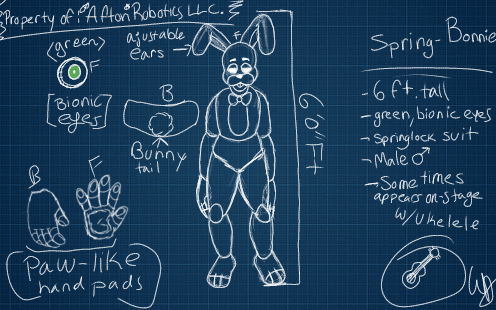 Property of: Afton Robotics LLC.
<green>
F
[Bionic
eyes]
ajustable
ears
F
B
Bunny
tail
6'0" FT
B
F
paw-like
hand pads
Spring-Bonnie
- 6 ft. tall
- green, bionic eyes
- springlock suit
- Male ♂
- Some times
appears on-stage
w/ukelele